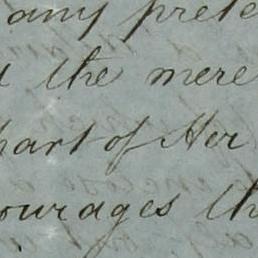 any prete
the mere
part of Her
ourages th